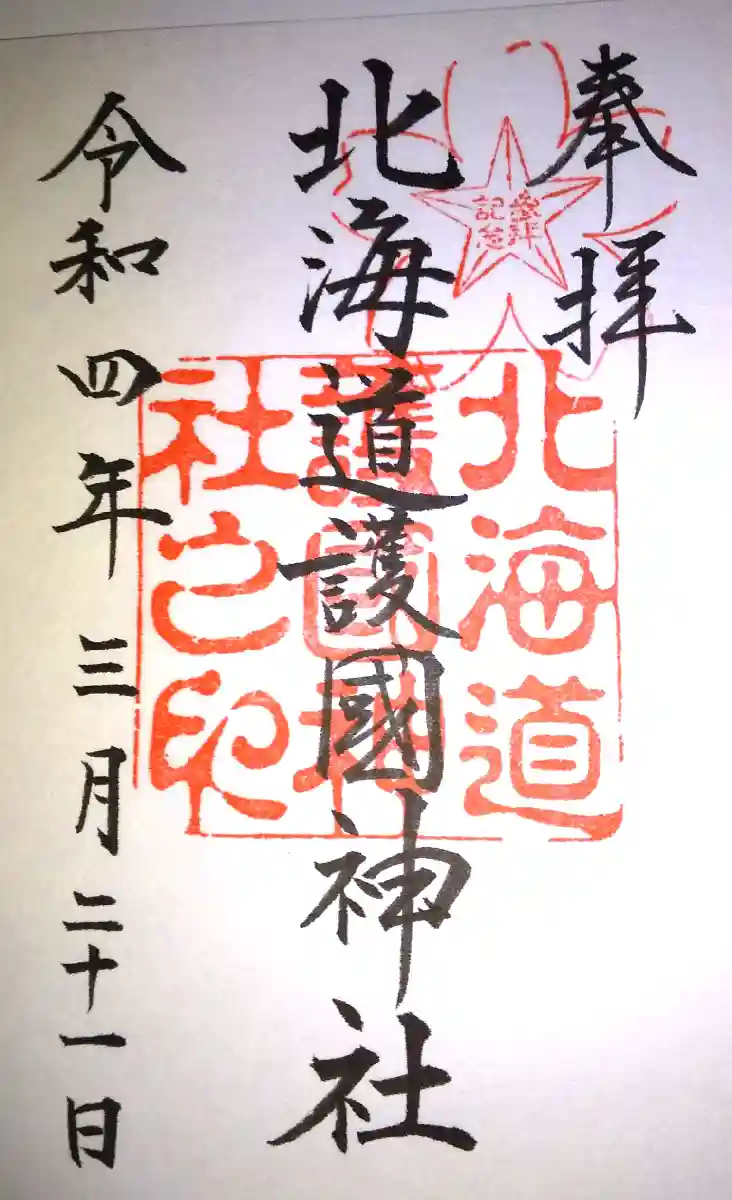 奉拝
参拝
記念
北海道護國神社
北海道
護國神
社之印
令和四年三月二十一日